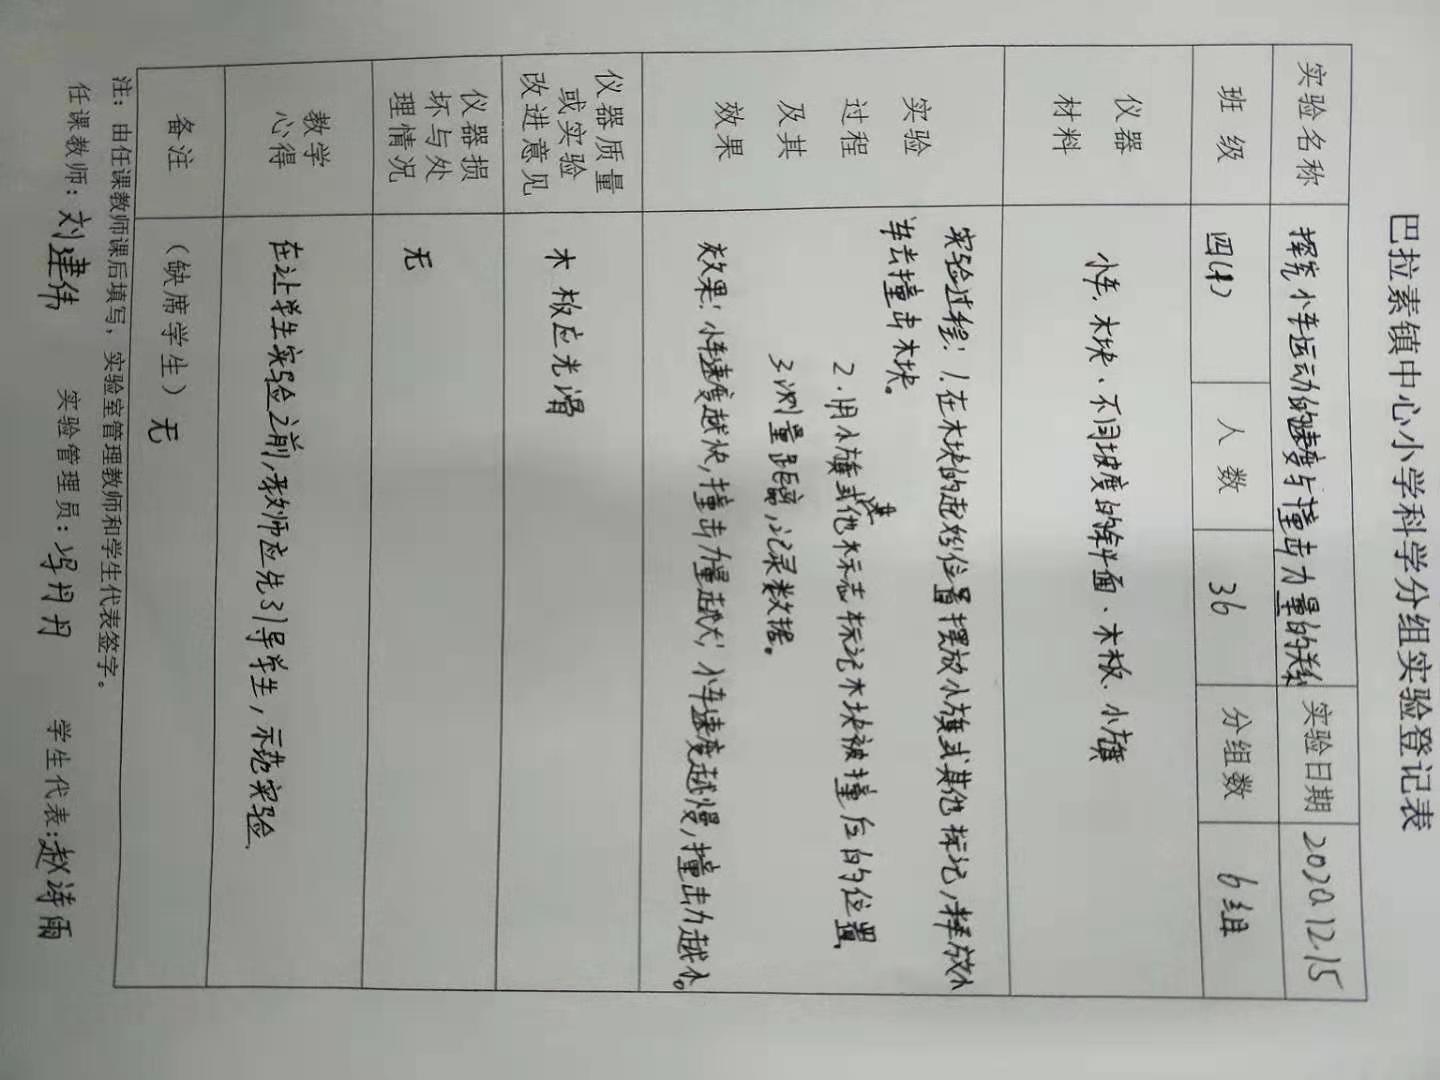 巴拉素镇中心小学科学分组实验登记表
实验名称 探究小车运动的速度与撞击力量的关系 实验日期 2020.12.15
班级 四(1) 人数 36 分组数 6组
仪器
材料
小车、木块、不同坡度的斜面、木板、小旗
实验
过程
及其
效果
实验过程：1.在木块的起始位置摆放小旗或其他标记，释放小
车去撞击木块。
2.用小旗或其他标志标记木块被撞后的位置
3.测量距离，记录数据。
效果：小车速度越快，撞击力量越大；小车速度越慢，撞击力越小。
仪器质量
或实验
改进意见
木板应光滑
仪器损
坏与处
理情况
无
教学
心得
在让学生实验之前，教师应先引导学生，示范实验.
备注
（缺席学生）无
注：由任课教师课后填写，实验室管理教师和学生代表签字。
任课教师：刘建伟 实验管理员：冯丹丹 学生代表：赵诗雨